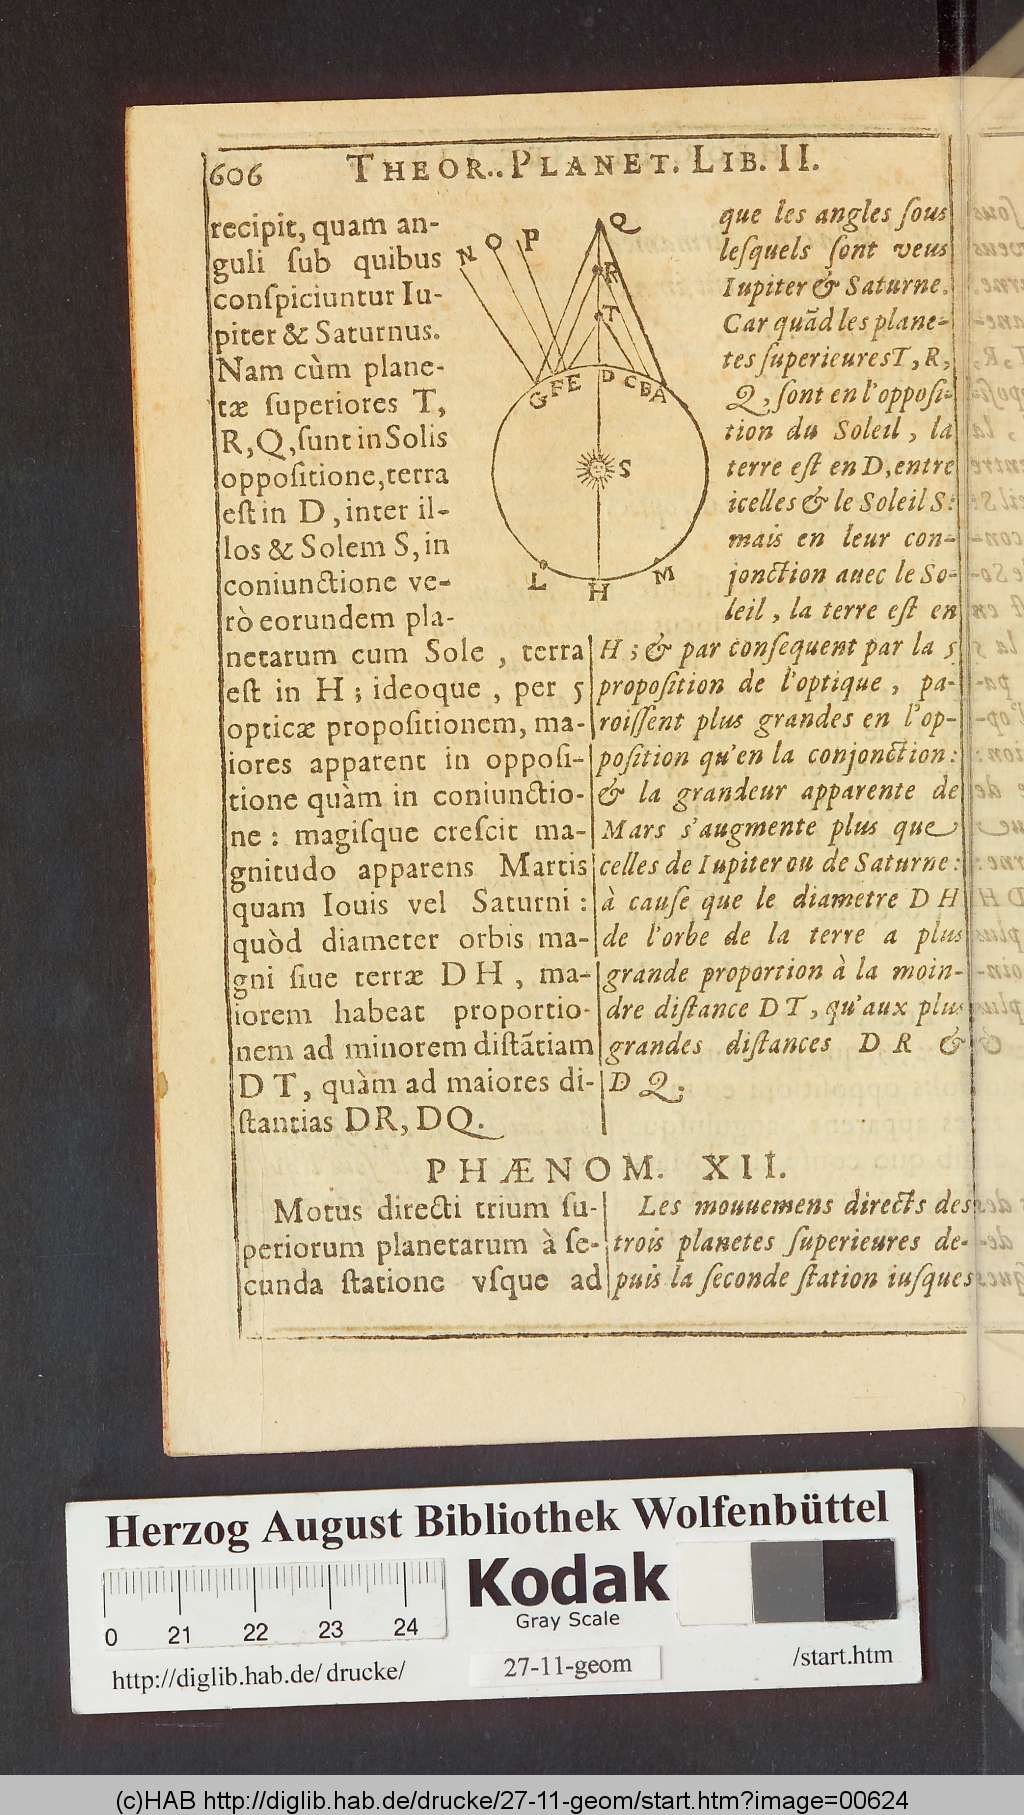 606 THEOR.. PLANET. LIB. II.
recipit, quam an-
guli ſub quibus
conſpiciuntur Iu-
piter & Saturnus.
Nam cùm plane-
tæ ſuperiores T,
R, Q, ſunt in Solis
oppoſitione, terra
eſt in D, inter il-
los & Solem S, in
coniunctione ve-
rò eorundem pla-
netarum cum Sole, terra
eſt in H; ideoque, per 5
opticæ propoſitionem, ma-
iores apparent in oppoſi-
tione quàm in coniunctio-
ne: magiſque creſcit ma-
gnitudo apparens Martis
quam Iouis vel Saturni:
quòd diameter orbis ma-
gni ſiue terræ D H, ma-
iorem habeat proportio-
nem ad minorem diſtãtiam
D T, quàm ad maiores di-
ſtantias DR, DQ.
N O P Q
R
T
G F E D C B A
S
L H M
que les angles ſous
leſquels ſont veus
Iupiter & Saturne.
Car quãd les plane-
tes ſuperieures T, R,
Q, ſont en l'oppoſi-
tion du Soleil, la
terre eſt en D, entre
icelles & le Soleil S:
mais en leur con-
jonction auec le So-
leil, la terre eſt en
H; & par conſequent par la 5
propoſition de l'optique, pa-
roiſſent plus grandes en l'op-
poſition qu'en la conjonction:
& la grandeur apparente de
Mars s'augmente plus que
celles de Iupiter ou de Saturne:
à cauſe que le diametre D H
de l'orbe de la terre a plus
grande proportion à la moin-
dre diſtance D T, qu'aux plus
grandes diſtances D R &
D Q.
PHÆNOM. XII.
Motus directi trium ſu-
periorum planetarum à ſe-
cunda ſtatione vſque ad
Les mouuemens directs des
trois planetes ſuperieures de-
puis la ſeconde ſtation iuſques
Herzog August Bibliothek Wolfenbüttel
Kodak
Gray Scale
0 21 22 23 24
http://diglib.hab.de/drucke/ 27-11-geom /start.htm
(c)HAB http://diglib.hab.de/drucke/27-11-geom/start.htm?image=00624